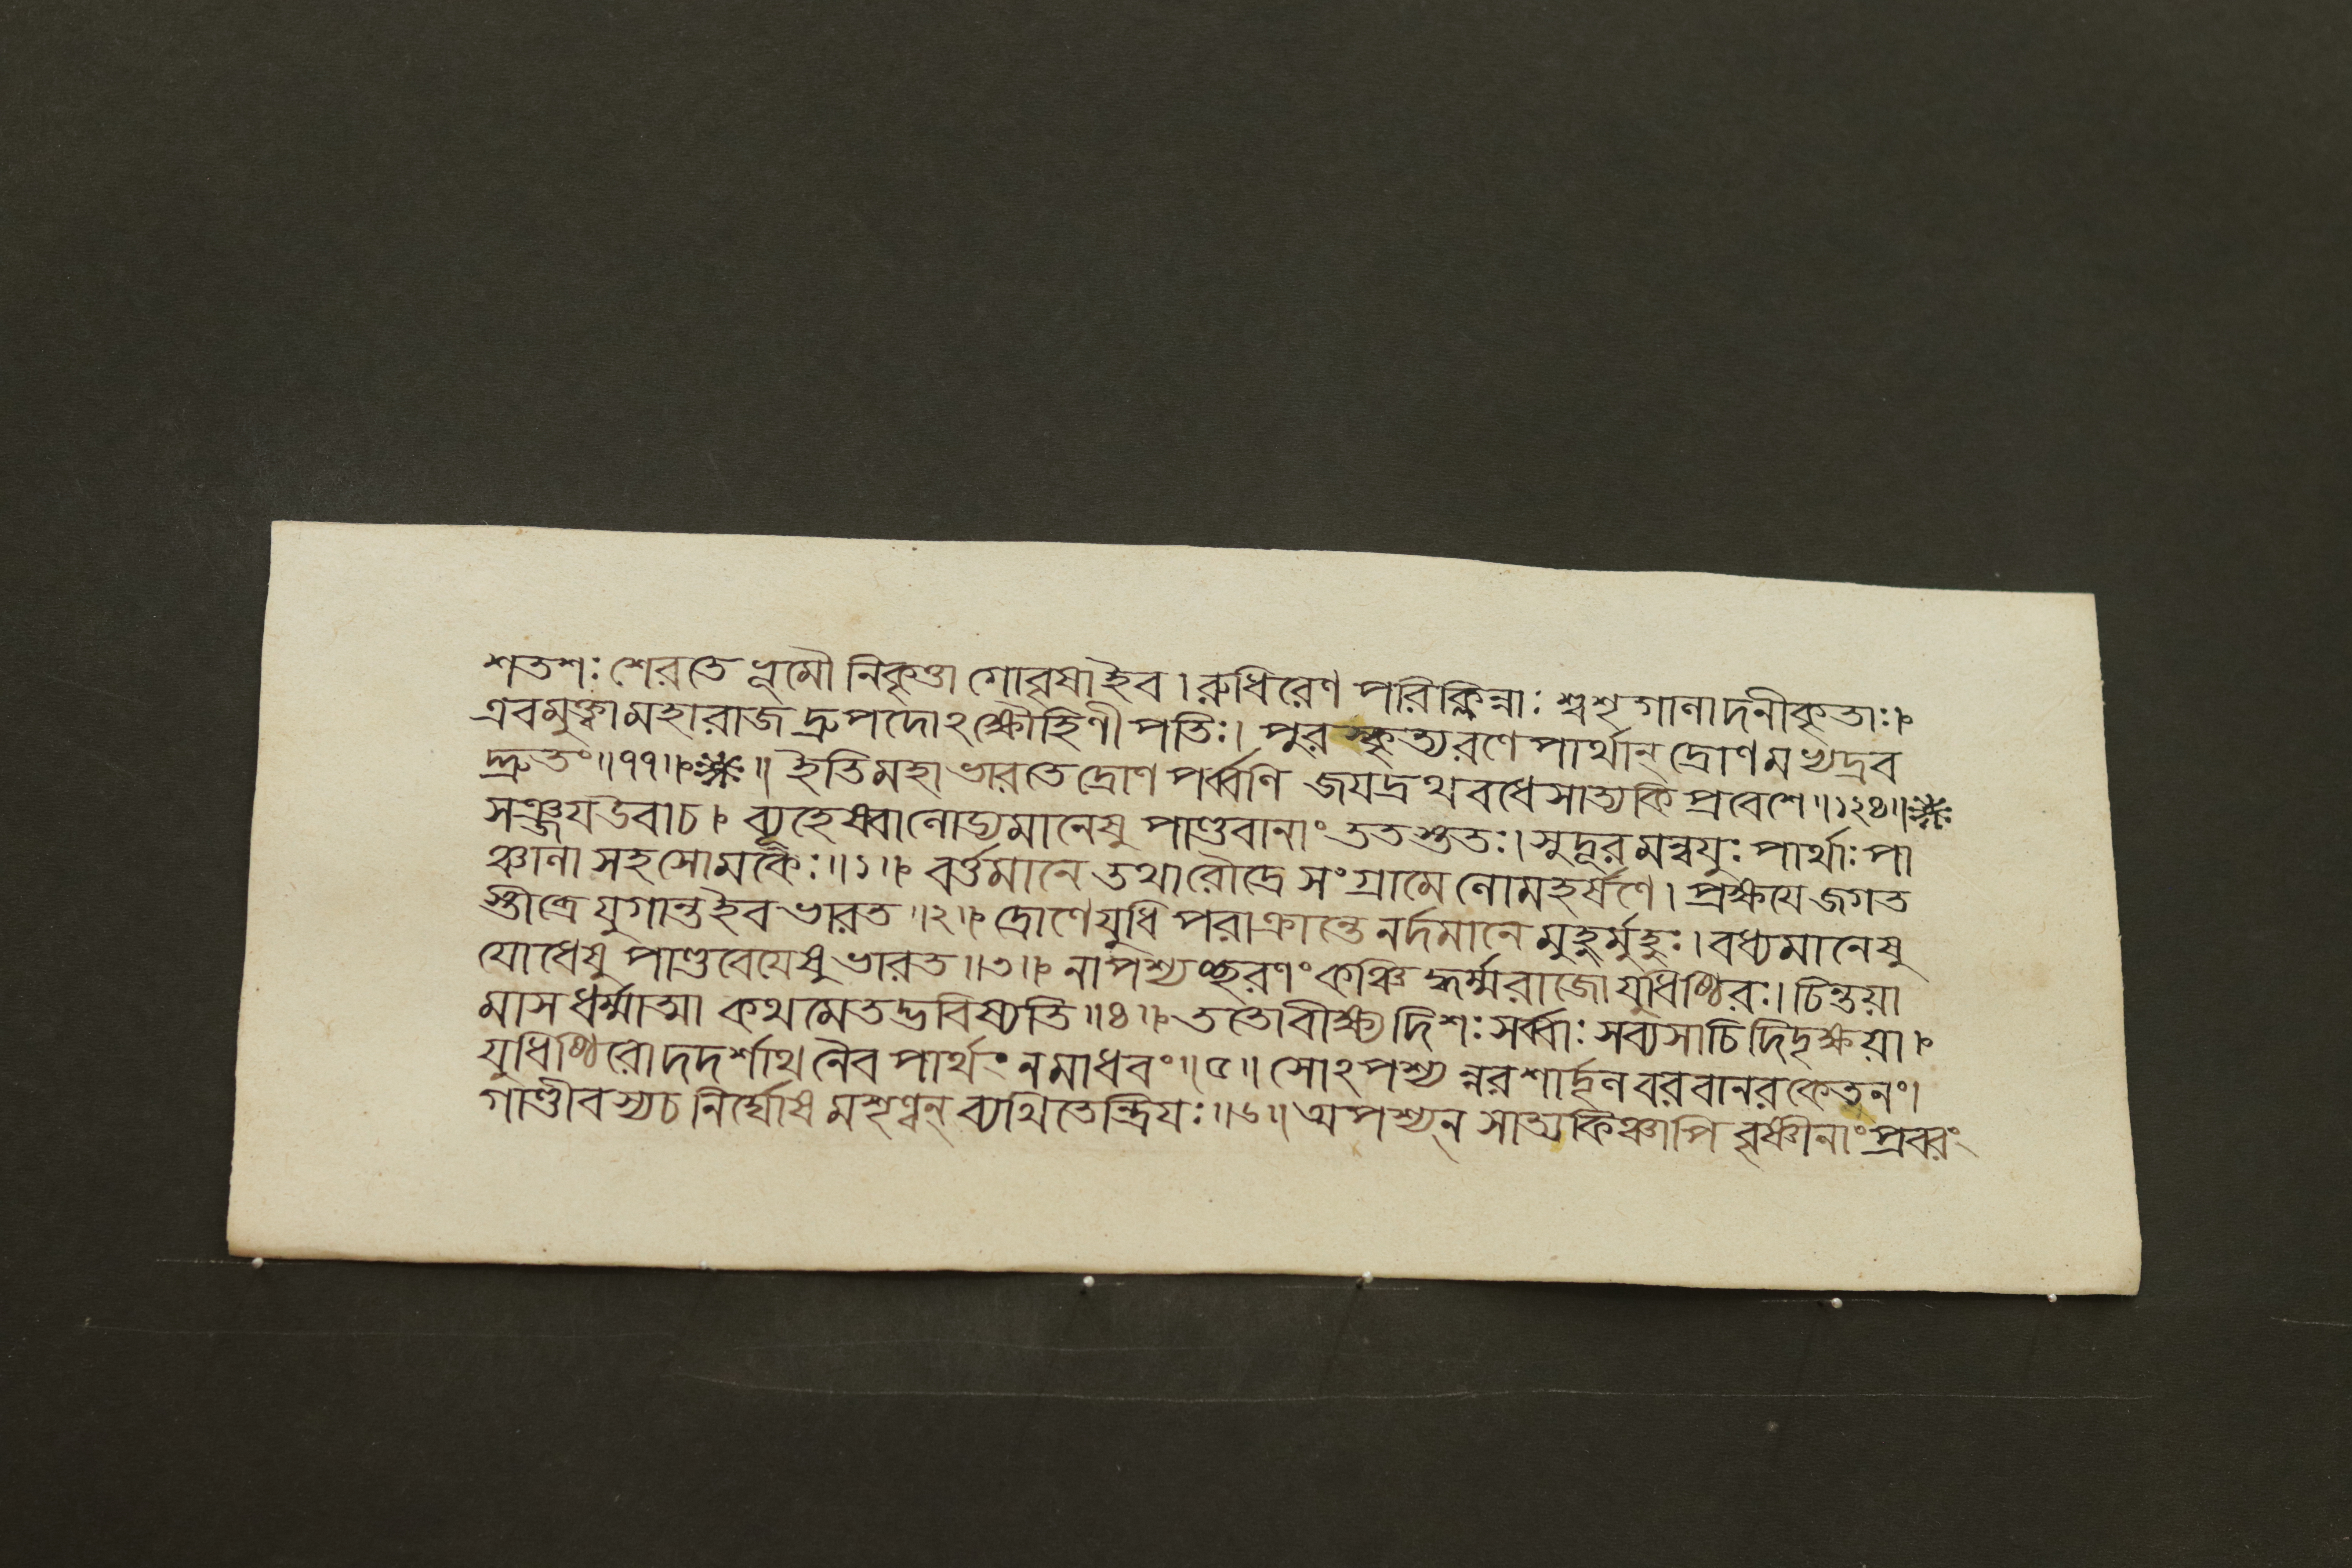 শতশঃ শেরতে ভূমৌ নিকৃত্তা গোবৃষা ইব । রুধিরেণ পরিক্লিন্নাঃ শ্বশৃগালাদনীকৃতাঃ।
এবমুক্ত্বা মহারাজ দ্রুপদোঽক্ষৌহিণী পতিঃ। পুরস্কৃত্য রণে পার্থান্ দ্রোণমভ্যদ্রব
দ্দ্রুতং॥৭৭॥ ॥ ইতি মহাভারতে দ্রোণ পর্ব্বণি জযদ্রথ বধে সাত্যকি প্রবেশে॥১২৪॥
সঞ্জয উবাচ। ব্যূহেষ্বালোড্যমানেষু পাণ্ডবানাং ততস্ততঃ। সুদূরমন্বযুঃ পার্থাঃ পা
ঞ্চালা সহ সোমকৈঃ॥১॥ বর্ত্তমানে তথা রৌদ্রে সংগ্রামে লোমহর্ষণে। প্রক্ষযে জগত
স্তীব্রে যুগান্ত ইব ভারত॥২॥ দ্রোণে যুধি পরাক্রান্তে নর্দমানে মুহুর্মুহুঃ। বধ্যমানেষু
যোধেষু পাণ্ডবেযেষু ভারত॥৩॥ নাপশ্যচ্ছরণং কঞ্চিদ্ধর্ম্মরাজো যুধিষ্ঠিরঃ। চিন্তয়া
মাস ধর্ম্মাত্মা কথমেতদ্ভবিষ্যতি॥৪॥ ততো বীক্ষ্য দিশঃ সর্ব্বাঃ সব্যসাচি দিদৃক্ষয়া।
যুধিষ্ঠিরো দদর্শাথ নৈব পার্থং ন মাধবং॥৫॥ সোঽপশ্যন্নরশার্দূলবরবানরকেতনং।
গাণ্ডীবস্য চ নির্ঘোষমশৃণ্বন্ ব্যথিতেন্দ্রিযঃ॥৬॥ অপশ্যন্ সাত্যকিঞ্চাপি বৃষ্ণীনাং প্রবরং